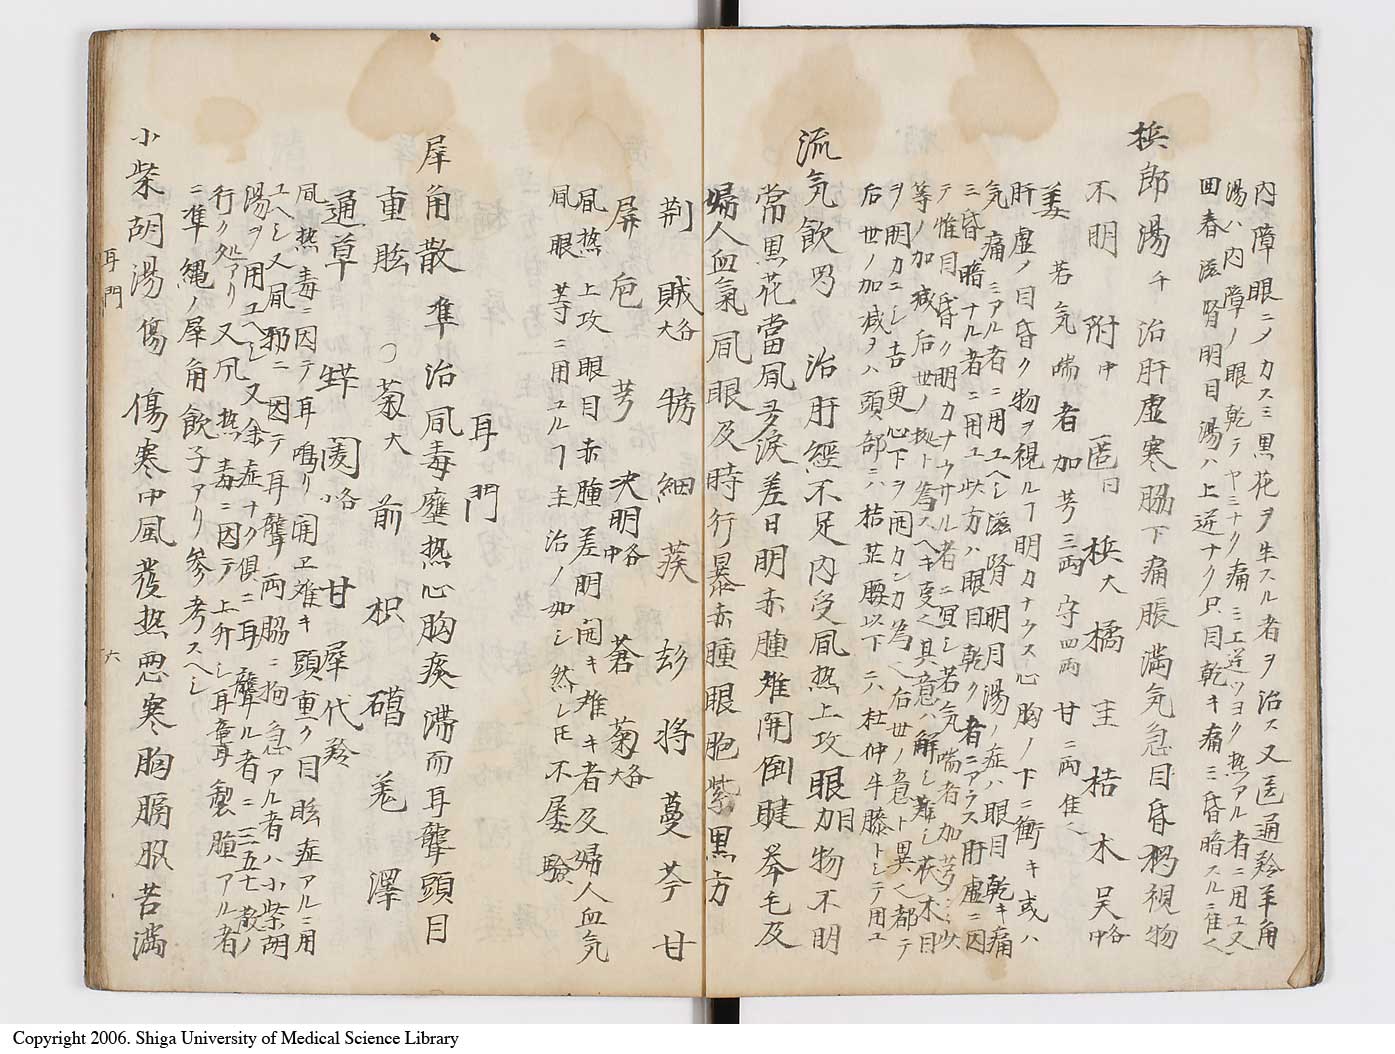 内障眼ニノカスミ黒花ヲ生スル者ヲ治ス又匿通羚羊角
湯ハ内障ノ眼乾テヤミナク痛ミ上逆ツヨク熱アル者ニ用ユ又
回春滋腎明目湯ハ上逆ナク只目乾キ痛ミ昏暗スルニ隹〱
梹郎湯千 治肝虚寒脇下痛脹満気急目昏視物
不明 附中 匿日 梹大 橘 主 桔 木 呉各中
姜 若気喘者加芎三両 守四両 甘二両 隹〱
肝虚ノ目昏ク物ヲ視ルヿ明カナウス心胸ノ下ニ衝キ或ハ
気痛ミアル者ニ用エヘシ滋腎明月湯ノ症ハ眼目乾キ痛
ミ昏暗ナル者ニ用ユ此方ハ眼目乾ク者ニアラス肝虚ニ因
テ惟目昏ク明カナウサル者ニ宜シ若気喘者加芎
等ノ加減后世ノ為スヘキ其意ハ解シ難シ茯木目
ヲ明カニシ吉更心下ヲ開カン為〱后世ノ意ト異〱都テ
后世ノ加減ヲハ頭部ニハ桔芷腰以下ニハ杜仲牛膝トシテ用ユ
流気飲 治肝經不足内受風热上攻眼目物不明
常黒花當風多淚差日明赤腫难開倒睫拳毛及
婦人血氣風眼及時行暴赤腫眼胞紫黒方
荆 賊各大 犓 細 蒺 彭 将 蔓 芩 甘
屏 巵 芎 决明各中 蒼 菊各大
風热上攻眼目赤腫差明開キ难キ者及婦人血気
風眼等ニ用ユルヿ主治ノ如シ然レ𪜈不屡験
耳門
犀角散 準 治風毒壅热心胸痰滞而耳聾頭目
重眩 ○菊大 前 枳 礧 羗 澤
通草 甘 犀代羚
風热毒ニ因テ耳鳴リ聞ヱ难キ頭重ク目眩症アルニ用
ユヘシ又風邪ニ因テ耳聾両脇ニ拘急アル者ハ小柴胡
湯ヲ用ユヘシ又余症ナク倶ニ耳聾ル者ニ二三五七散ノ
行ク処アリ又風热毒ニ因テ上升シ耳聾製腫アル者
ニ準縄ノ犀角飲子アリ参考スヘシ
小柴胡湯傷 傷寒中風發热惡寒胸膈眼苦満
耳門
六
Copyright 2006. Shiga University of Medical Science Library